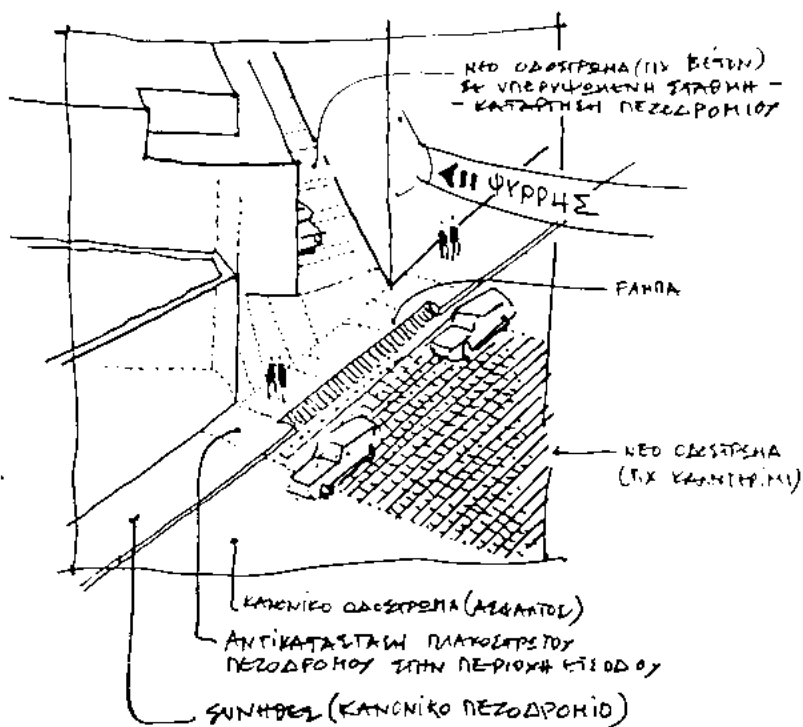 ΝΕΟ ΟΔΟΣΤΡΩΜΑ (ΠΧ ΒΕΤΟΝ)
ΣΕ ΥΠΕΡΥΨΩΜΕΝΗ ΣΤΑΘΜΗ –
– ΚΑΤΑΡΓΗΣΗ ΠΕΖΟΔΡΟΜΙΟΥ
ΨΥΡΡΗΣ
ΡΑΜΠΑ
ΝΕΟ ΟΔΟΣΤΡΩΜΑ
(ΠΧ ΚΑΛΝΤΕΡΙΜΙ)
ΚΑΝΟΝΙΚΟ ΟΔΟΣΤΡΩΜΑ (ΑΣΦΑΛΤΟΣ)
ΑΝΤΙΚΑΤΑΣΤΑΣΗ ΠΛΑΚΟΣΤΡΩΤΟΥ
ΠΕΖΟΔΡΟΜΟΥ ΣΤΗΝ ΠΕΡΙΟΧΗ ΕΙΣΟΔΟΥ
ΣΥΝΗΘΕΣ (ΚΑΝΟΝΙΚΟ ΠΕΖΟΔΡΟΜΙΟ)